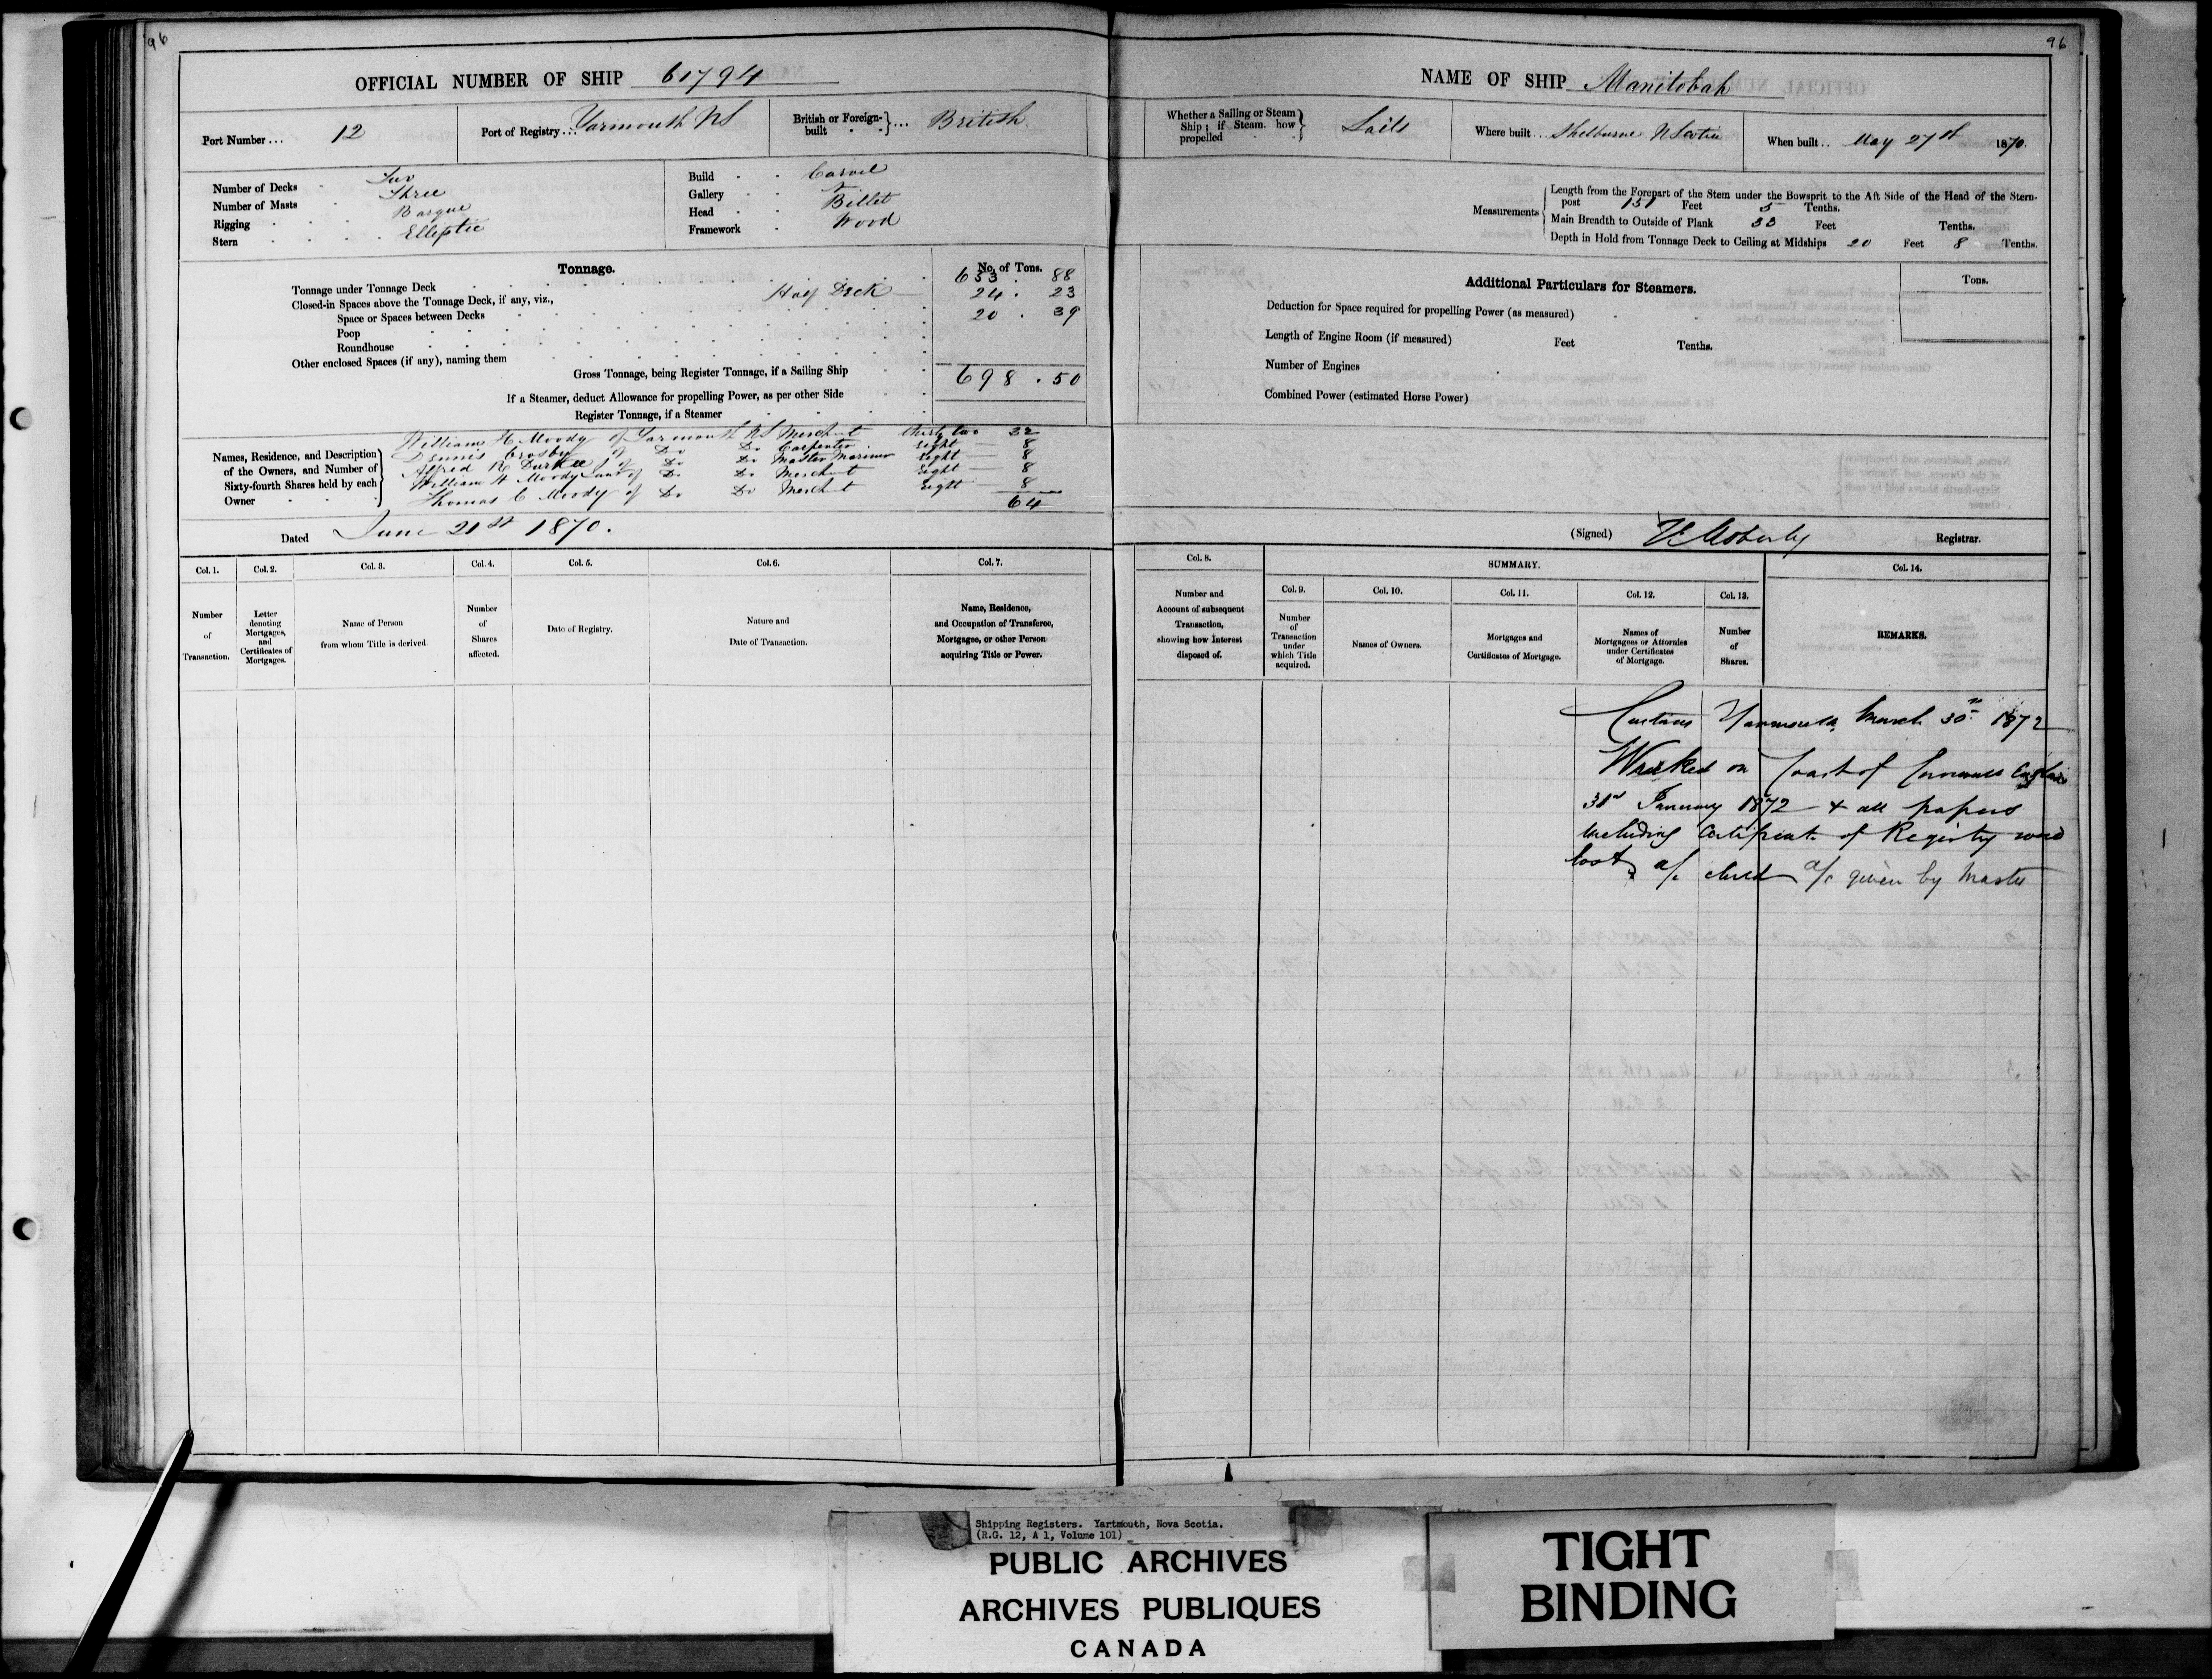 96
OFFICIAL NUMBER OF SHIP 61794
Port Number ... 12
Port of Registry ... Yarmouth NS
British or Foreign-built ... British
Number of Decks Two
Number of Masts Three
Rigging Barque
Stern Elliptic
Build Carvel
Gallery
Head Billet
Framework Wood
Tonnage.
No. of Tons.
Tonnage under Tonnage Deck 653 . 88
Closed-in Spaces above the Tonnage Deck, if any, viz., Half Deck 24 . 23
Space or Spaces between Decks 20 . 39
Poop
Roundhouse
Other enclosed Spaces (if any), naming them
Gross Tonnage, being Register Tonnage, if a Sailing Ship 698 . 50
If a Steamer, deduct Allowance for propelling Power, as per other Side
Register Tonnage, if a Steamer
Names, Residence, and Description of the Owners, and Number of Sixty-fourth Shares held by each Owner
William H Moody of Yarmouth NS Merchant thirty two 32
Dennis Crosby of Do Do Carpenter Eight 8
Alfred R Durkee of Do Do Master Mariner Eight 8
William H Moody Junr of Do Do Merchant Eight 8
Thomas C Moody of Do Do Merchant Eight 8
64
Dated June 21st 1870.
Col. 1.
Number of Transaction.
Col. 2.
Letter denoting Mortgages, and Certificates of Mortgages.
Col. 3.
Name of Person from whom Title is derived
Col. 4.
Number of Shares affected.
Col. 5.
Date of Registry.
Col. 6.
Nature and Date of Transaction.
Col. 7.
Name, Residence, and Occupation of Transferee, Mortgagee, or other Person acquiring Title or Power.
96
NAME OF SHIP Manitobah
Whether a Sailing or Steam Ship; if Steam, how propelled Sails
Where built ... Shelburne N Scotia
When built .. May 27th 1870.
Measurements
Length from the Forepart of the Stem under the Bowsprit to the Aft Side of the Head of the Stern-
post 151 Feet 5 Tenths.
Main Breadth to Outside of Plank 33 Feet Tenths.
Depth in Hold from Tonnage Deck to Ceiling at Midships 20 Feet 8 Tenths.
Additional Particulars for Steamers.
Tons.
Deduction for Space required for propelling Power (as measured)
Length of Engine Room (if measured) Feet Tenths.
Number of Engines
Combined Power (estimated Horse Power)
(Signed) Moberly Registrar.
Col. 8.
Number and Account of subsequent Transaction, showing how Interest disposed of.
SUMMARY.
Col. 9.
Number of Transaction under which Title acquired.
Col. 10.
Names of Owners.
Col. 11.
Mortgages and Certificates of Mortgage.
Col. 12.
Names of Mortgagees or Attornies under Certificates of Mortgage.
Col. 13.
Number of Shares.
Col. 14.
REMARKS.
Customs Yarmouth, March 30th 1872
Wrecked on Coast of Cornwall England
31st January 1872 & all papers
including Certificate of Registry were
lost, a/c closed a/c given by Master
Shipping Registers. Yartmouth, Nova Scotia.
(R.G. 12, A 1, Volume 101)
PUBLIC ARCHIVES
ARCHIVES PUBLIQUES
CANADA
TIGHT
BINDING